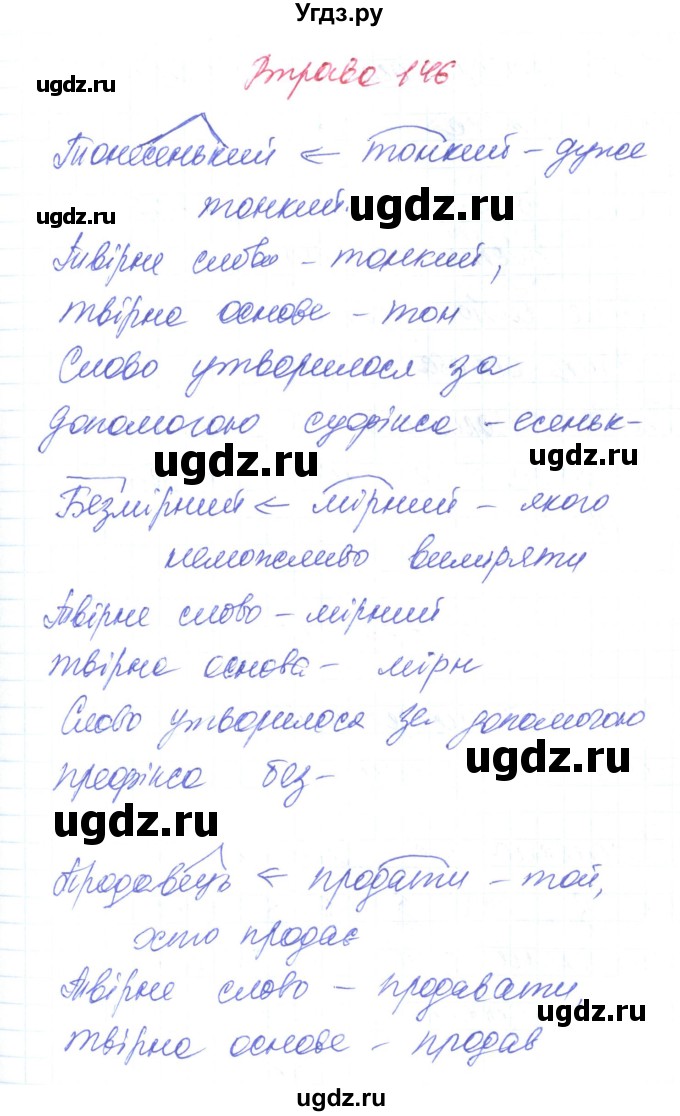 Угдз.ру
Вправа 146
ugdz.ru
Тонесенький ← тонкий – дуже
ugdz.ru тонкий. ugdz.ru
Твірне слово – тонкий,
твірна основа – тон
Слово утворилося за
допомогою суфікса – есеньк-
ugdz.ru ugdz.ru
Безмірний ← мірний – якого
неможливо виміряти
Твірне слово – мірний
твірна основа – мірн
Слово утворилося за допомогою
префікса без-
ugdz.ru
ugdz.ru
Продавець ← продати – той,
хто продає
Твірне слово – продавати,
ugdz.ru
твірна основа – продав
ugdz.ru ugdz.ru